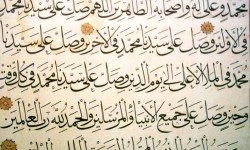 محمد وعلى آله وأصحابه الطاهرين اللهم وصل على سيدنا محمد
في الأولين وصل على سيدنا محمد في الآخرين وصل على سيدنا
محمد في الملإ الأعلى إلى يوم الدين وصل على سيدنا محمد في كل وقت
وحين وصل على جميع الأنبياء والمرسلين والحمد لله رب العالمين